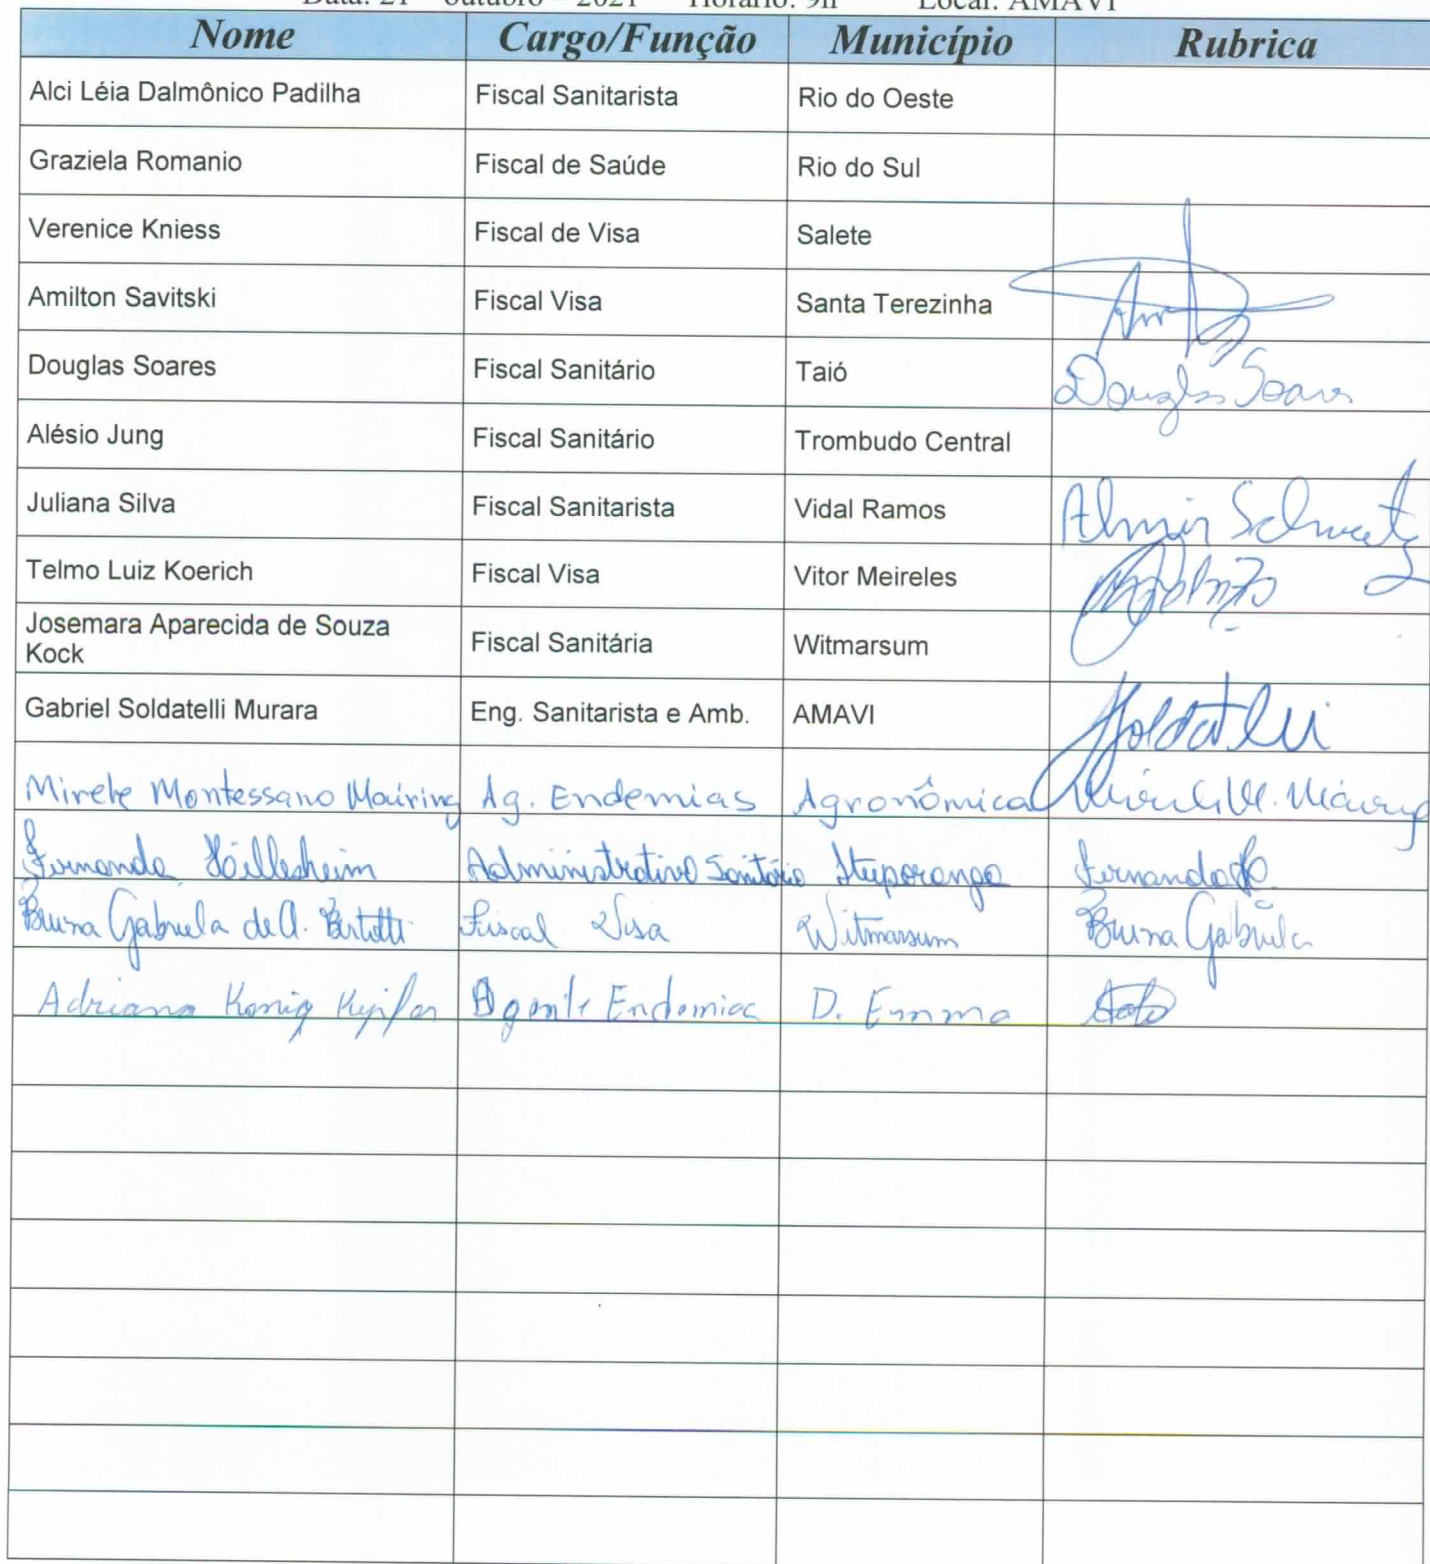 Data: 21 – outubro – 2021 Horário: 9h Local: AMAVI
Nome Cargo/Função Município Rubrica
Alci Léia Dalmônico Padilha Fiscal Sanitarista Rio do Oeste
Graziela Romanio Fiscal de Saúde Rio do Sul
Verenice Kniess Fiscal de Visa Salete
Amilton Savitski Fiscal Visa Santa Terezinha
Douglas Soares Fiscal Sanitário Taió Douglas Soares
Alésio Jung Fiscal Sanitário Trombudo Central
Juliana Silva Fiscal Sanitarista Vidal Ramos Almir
Telmo Luiz Koerich Fiscal Visa Vitor Meireles
Josemara Aparecida de Souza
Kock Fiscal Sanitária Witmarsum
Gabriel Soldatelli Murara Eng. Sanitarista e Amb. AMAVI
Montessano Ag. Endemias Agronômica
Fernanda Administrativo Sanitário Ituporanga Fernanda
Bruna Gabriela de A. Fiscal Visa Witmarsum Bruna Gabriela
Adriana Konig Agente Endemias D. Emma